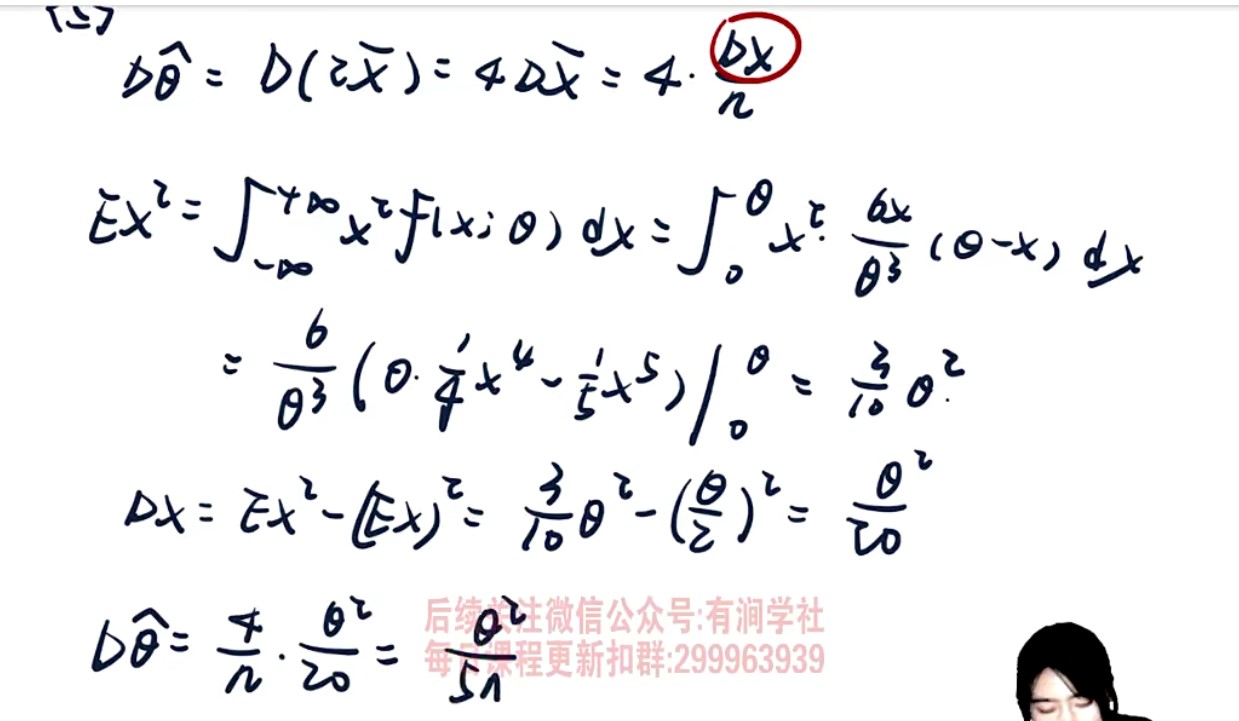 (2)
Dθ̂ = D(2X̄) = 4DX̄ = 4·DX/n
EX² = ∫_{-∞}^{+∞} x² f(x;θ) dx = ∫_0^θ x²·6x/θ³ (θ-x) dx
= 6/θ³ (θ·1/4 x⁴ - 1/5 x⁵) |_0^θ = 3/10 θ².
DX = EX² - (EX)² = 3/10 θ² - (θ/2)² = θ²/20
Dθ̂ = 4/n · θ²/20 = θ²/5n
后续关注微信公众号:有涧学社
每日课程更新扣群:299963939